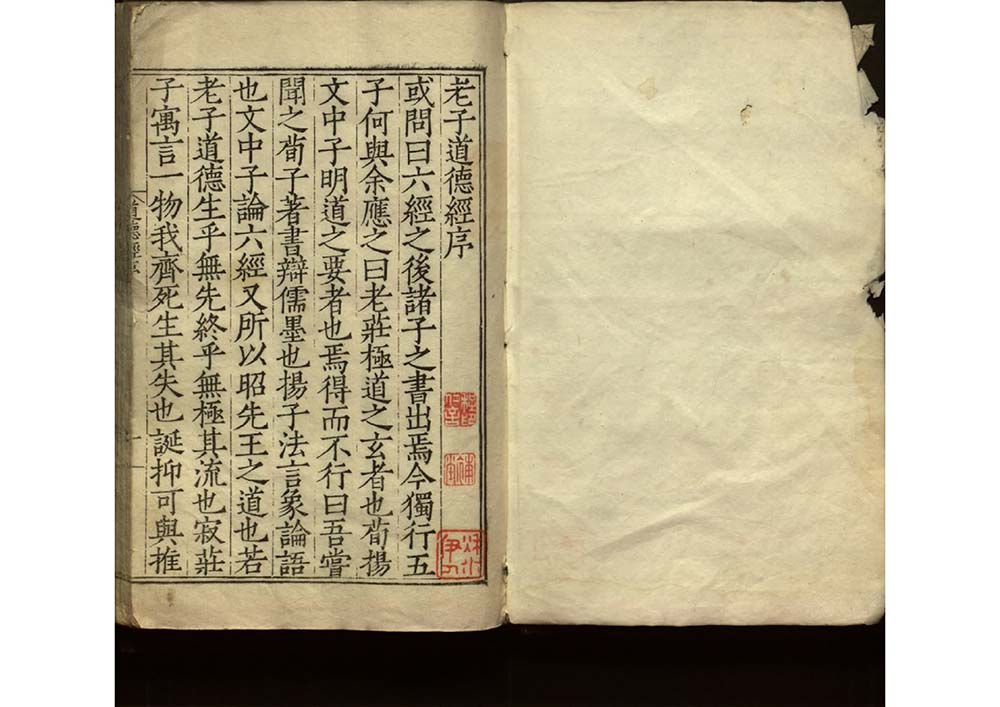 老子道德經序
或問曰六經之後諸子之書出焉今獨行五
子何與余應之曰老莊極道之玄者也荀揚
文中子明道之要者也焉得而不行曰吾嘗
聞之荀子著書辯儒墨也揚子法言象論語
也文中子論六經又所以昭先王之道也若
老子道德生乎無先終乎無極其流也寂莊
子寓言一物我齊死生其失也誕抑可與推
道德經序